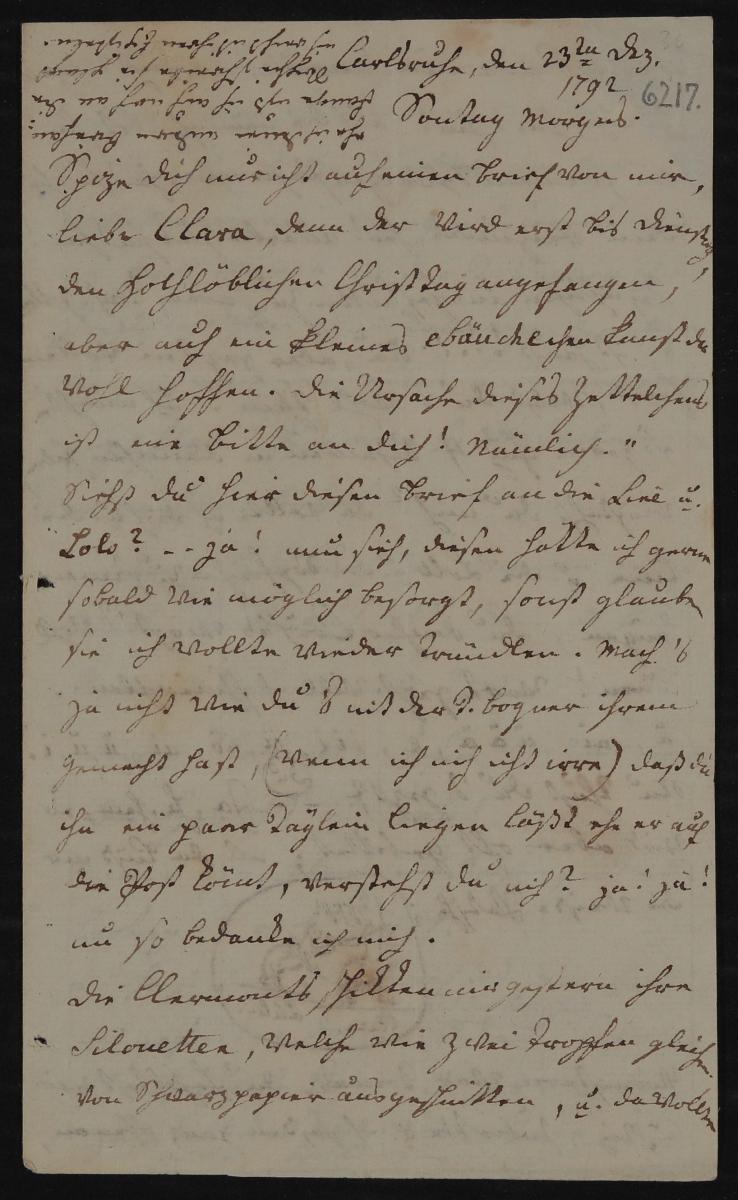 Carlsruhe, den 23ten Dez.
1792
6217.
Sontag Morgens.
Spize dich nur nicht auf einen Brief von mir,
liebe Clara, denn der wird erst bis Dienstag,
den hochlöblichen Christtag angefangen,
aber auf ein kleines kanst du
wohl hoffen. Die Ursache dieses Zettelchens
ist eine Bitte an dich! Nämlich."
Siehst du hier diesen Brief an die Liel u.
Lolo? -- ja! nun sieh, diesen hätte ich gerne
sobald wie möglich besorgt, sonst glauben
sie ich wollte wieder tründlen. Mach's
ja nicht wie du's mit der T. Bogner ihrem
gemacht hast, (wenn ich nich nicht irre) daß du
ihn ein paar Täglein liegen läßt ehe er auf
die Post kömt, verstehst du mich? ja! ja!
nu so bedanke ich mich.
Die Clermonts schikten mir gestern ihre
Silouetten, welche wie zwei Tropfen gleichen
von Schwarzpapier ausgeschnitten, u. da wollte